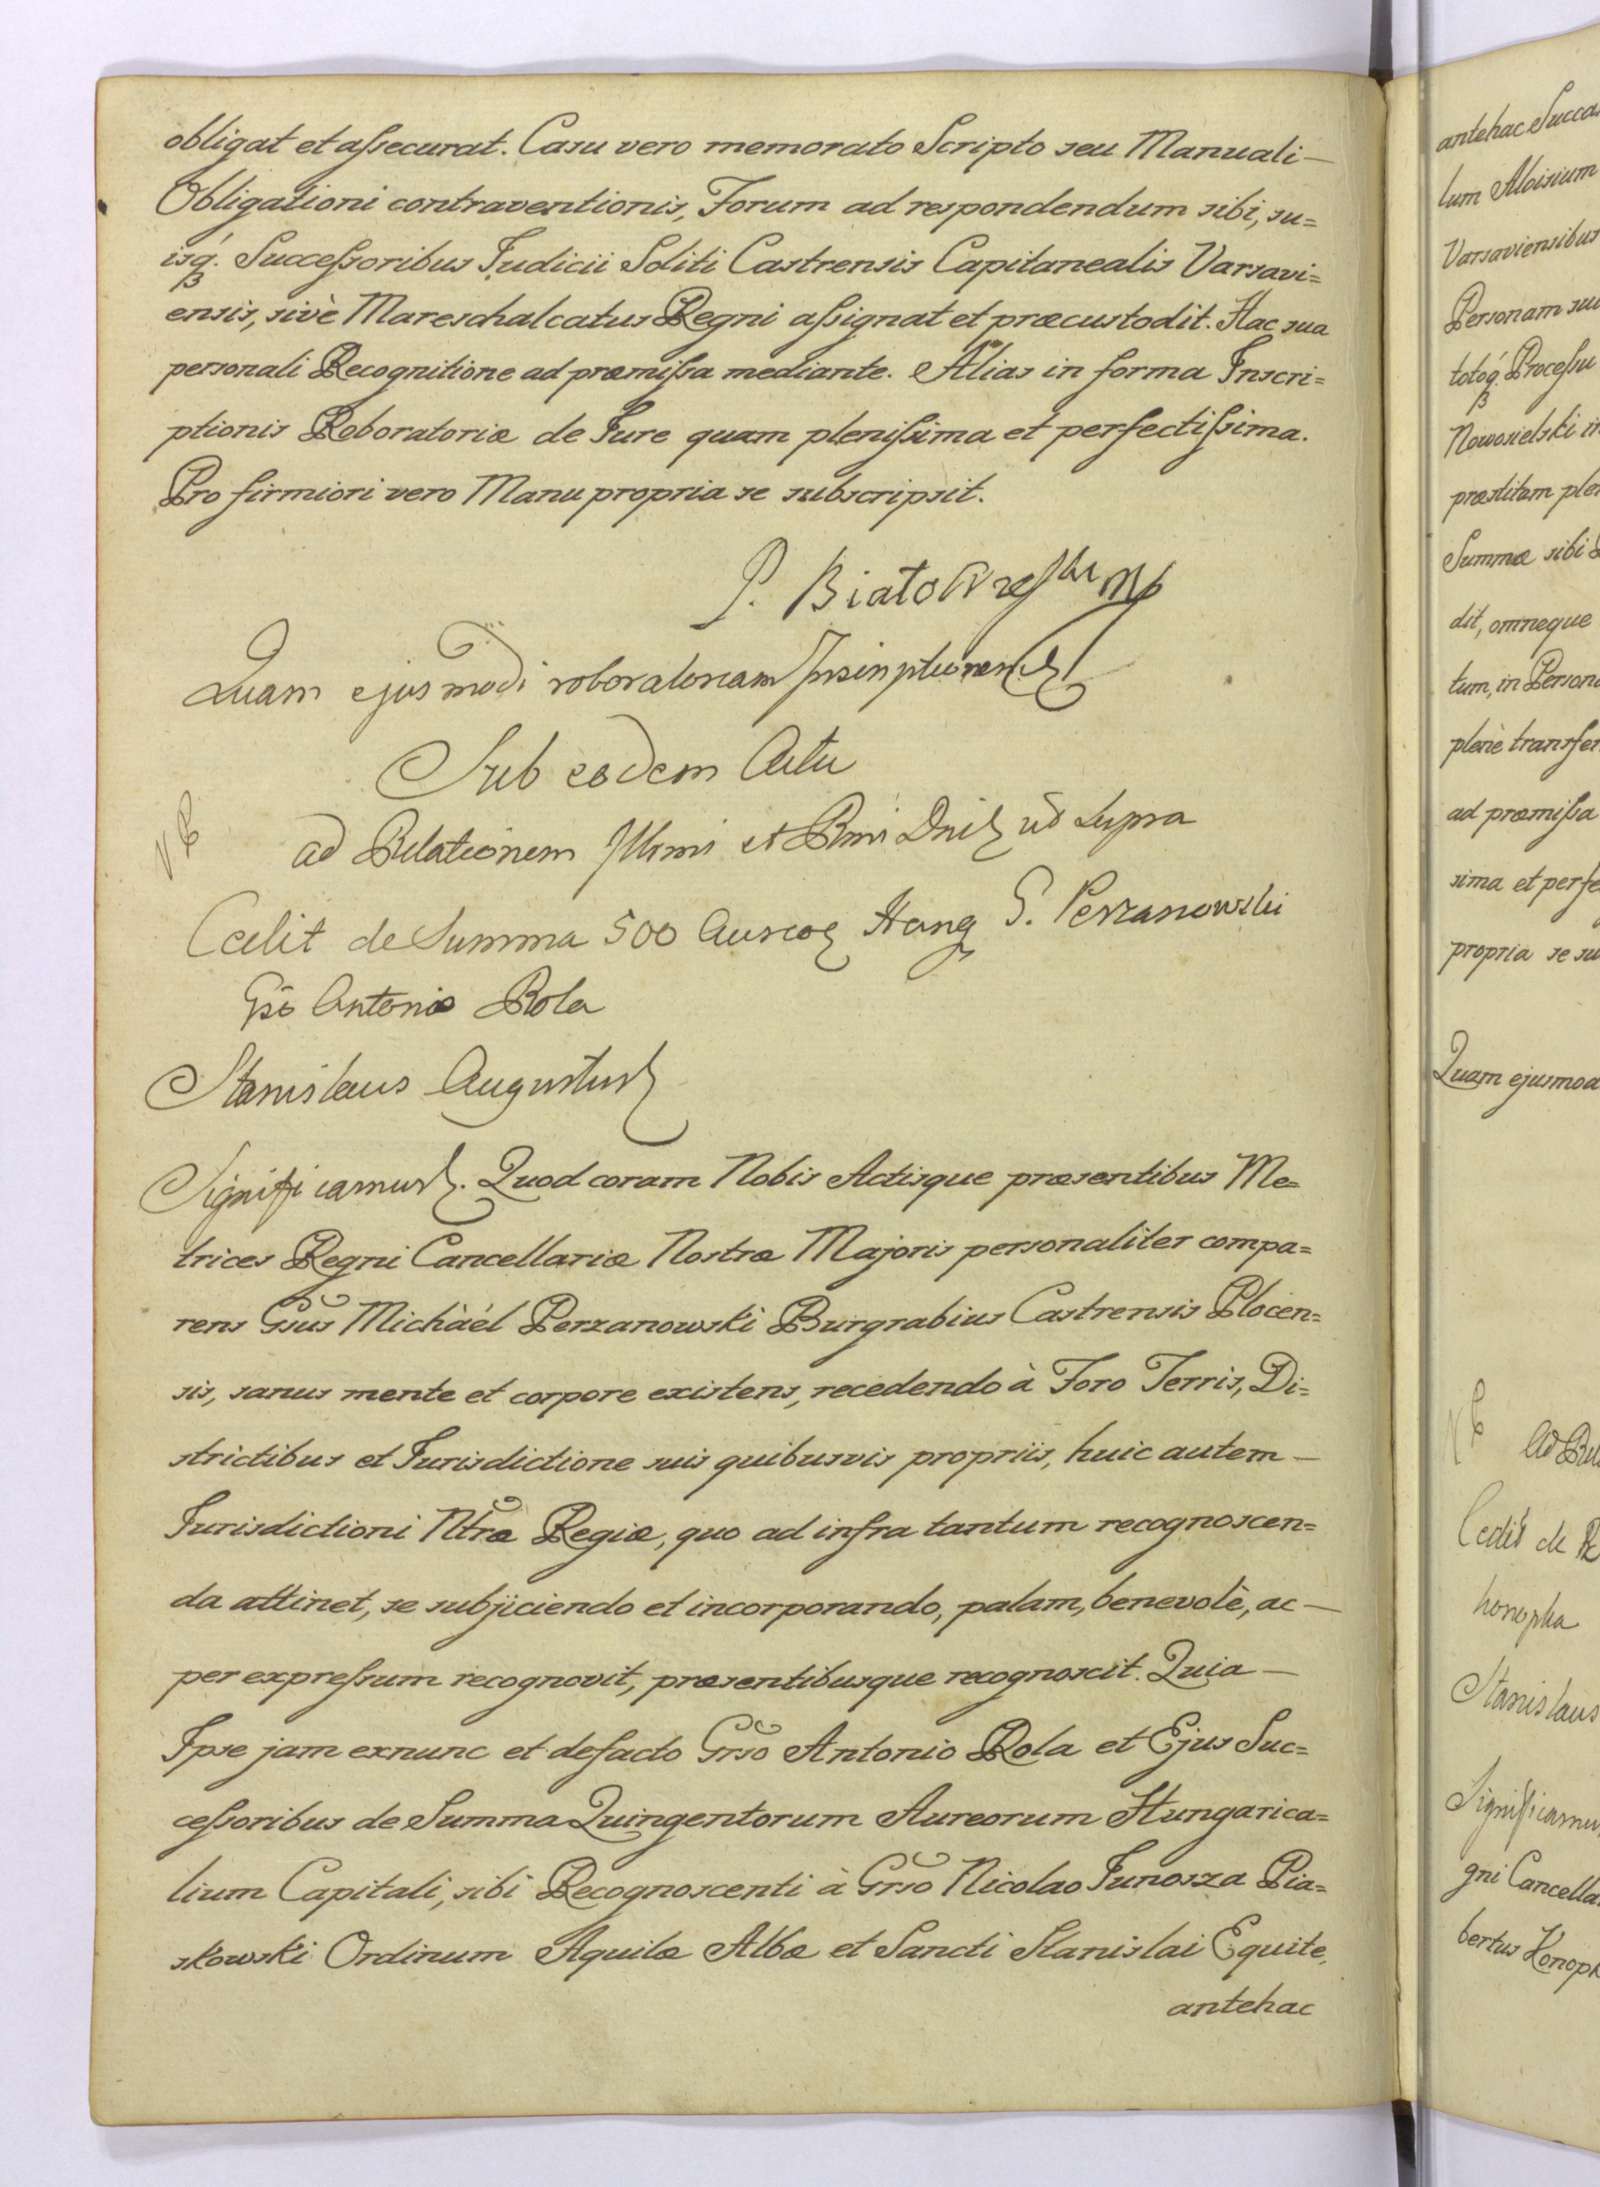 obligat et aſsecurat. Casu vero memorato Scripto seu Manuali —
Obligationi contraventionis, Forum ad respondendum sibi, su=
isq́. Succeſsoribus Judicii Soliti Castrensis Capitanealis Varsavi=
ensis, sivè Mareschalcatus Regni aſsignat et præcustodit. Hac sua
personali Recognitione ad præmiſsa mediante. Alias in forma Inscri=
ptionis Roboratoriæ de Jure quam pleniſsima et perfectiſsima.
Pro firmiori vero Manu propria se subscripsit.
P.
Quam ejusmodi roboratoriam Inscriptionem
Sub eodem Actu
ad Relationem Illrmi et Rmi Dni ut Supra
Cedit de Summa 500 Aureor Hung G. Perzanowski
Gso Antonio Rola
Stanislaus Augustus
Significamus. Quod coram Nobis Actisque præsentibus Me=
trices Regni Cancellariæ Nostræ Majoris personaliter compa=
rens Gsus Michàél Perzanowski Burgrabius Castrensis Plocen=
sis, sanus mente et corpore existens, recedendo à Foro Terris, Di=
strictibus et Jurisdictione suis quibusvis propriis, huic autem —
Jurisdictioni Ntræ Regiæ, quo ad infra tantum recognoscen=
da attinet, se subjiciendo et incorporando, palam, benevolè, ac —
per expreſsum recognovit, præsentibusque recognoscit. Quia —
Ipse jam exnunc et defacto Grso Antonio Rola et Ejus Suc=
ceſsoribus de Summa Quingentorum Aureorum Hungarica=
lium Capitali, sibi Recognoscenti à Grso Nicolao Junosza Pia=
skowski Ordinum Aquilæ Albæ et Sancti Stanislai Equite,
antehac
antehac
lum Aloisium
Varsaviensibus
Personam
totoq́. Proceſsu
Nowosielski
præstitam
Summæ sibi
dit, omneque
tum, in
plenè
ad præmiſsa
sima et
propria se
Quam
Cedit de
honopka
Stanislaus
gni
bertus